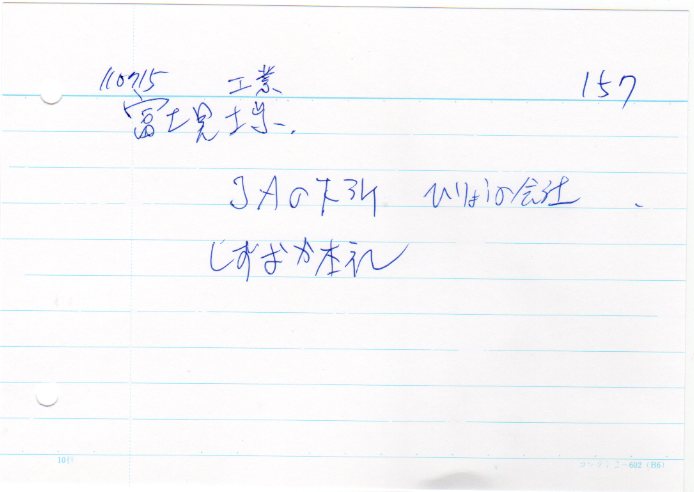 110715 工業 157
富士見工業
JAの下請 ひりょうの会社
しずおか本社
10行 コレクト C-602 (B6)